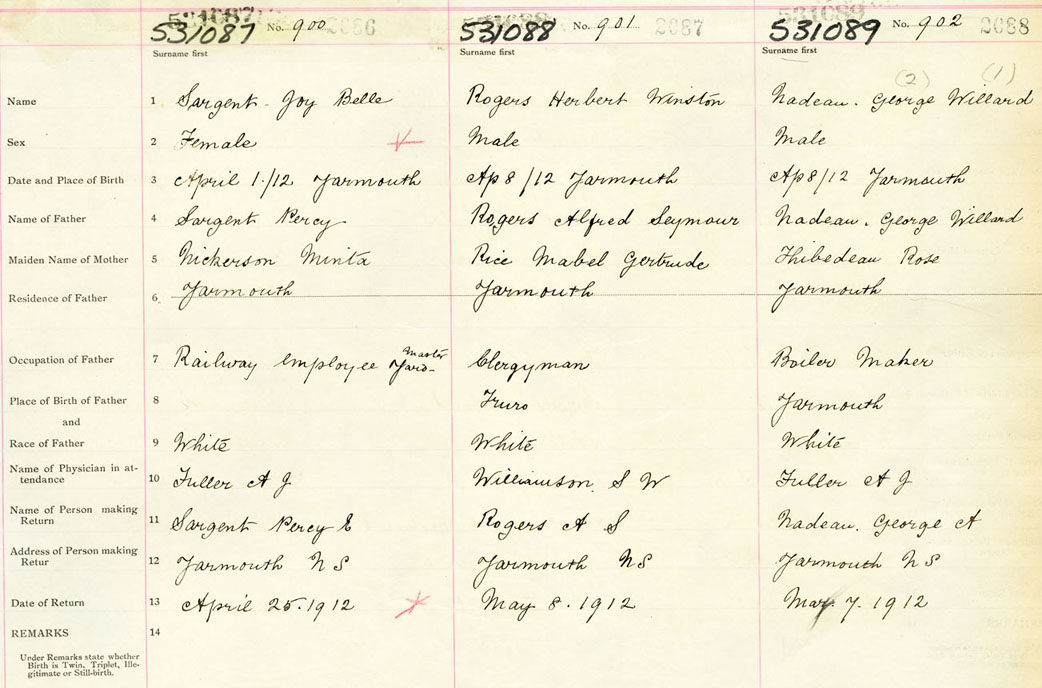 531087 No. 900 2086 531088 No. 901 2087 531089 No. 902 2088
Surname first Surname first Surname first
(2) (1)
Name 1 Sargent - Joy Belle Rogers Herbert Winston Nadeau. George Willard
Sex 2 Female Male Male
Date and Place of Birth 3 April 1./12 Yarmouth Ap 8/12 Yarmouth Ap 8/12 Yarmouth
Name of Father 4 Sargent Percy Rogers Alfred Seymour Nadeau. George Willard
Maiden Name of Mother 5 Nickerson Minta Rice Mabel Gertrude Thibedeau Rose
Residence of Father 6 Yarmouth Yarmouth Yarmouth
Occupation of Father 7 Railway employee Yard-master Clergyman Boiler Maker
Place of Birth of Father 8 Truro Yarmouth
and
Race of Father 9 White White White
Name of Physician in at-
tendance 10 Fuller A J Williamson. S W Fuller A J
Name of Person making
Return 11 Sargent Percy E Rogers A S Nadeau. George A
Address of Person making
Retur 12 Yarmouth N S Yarmouth NS Yarmouth NS
Date of Return 13 April 25.1912 May 8.1912 7.1912
REMARKS 14
Under Remarks state whether
Birth is Twin, Triplet, Ille-
gitimate or Still-birth.